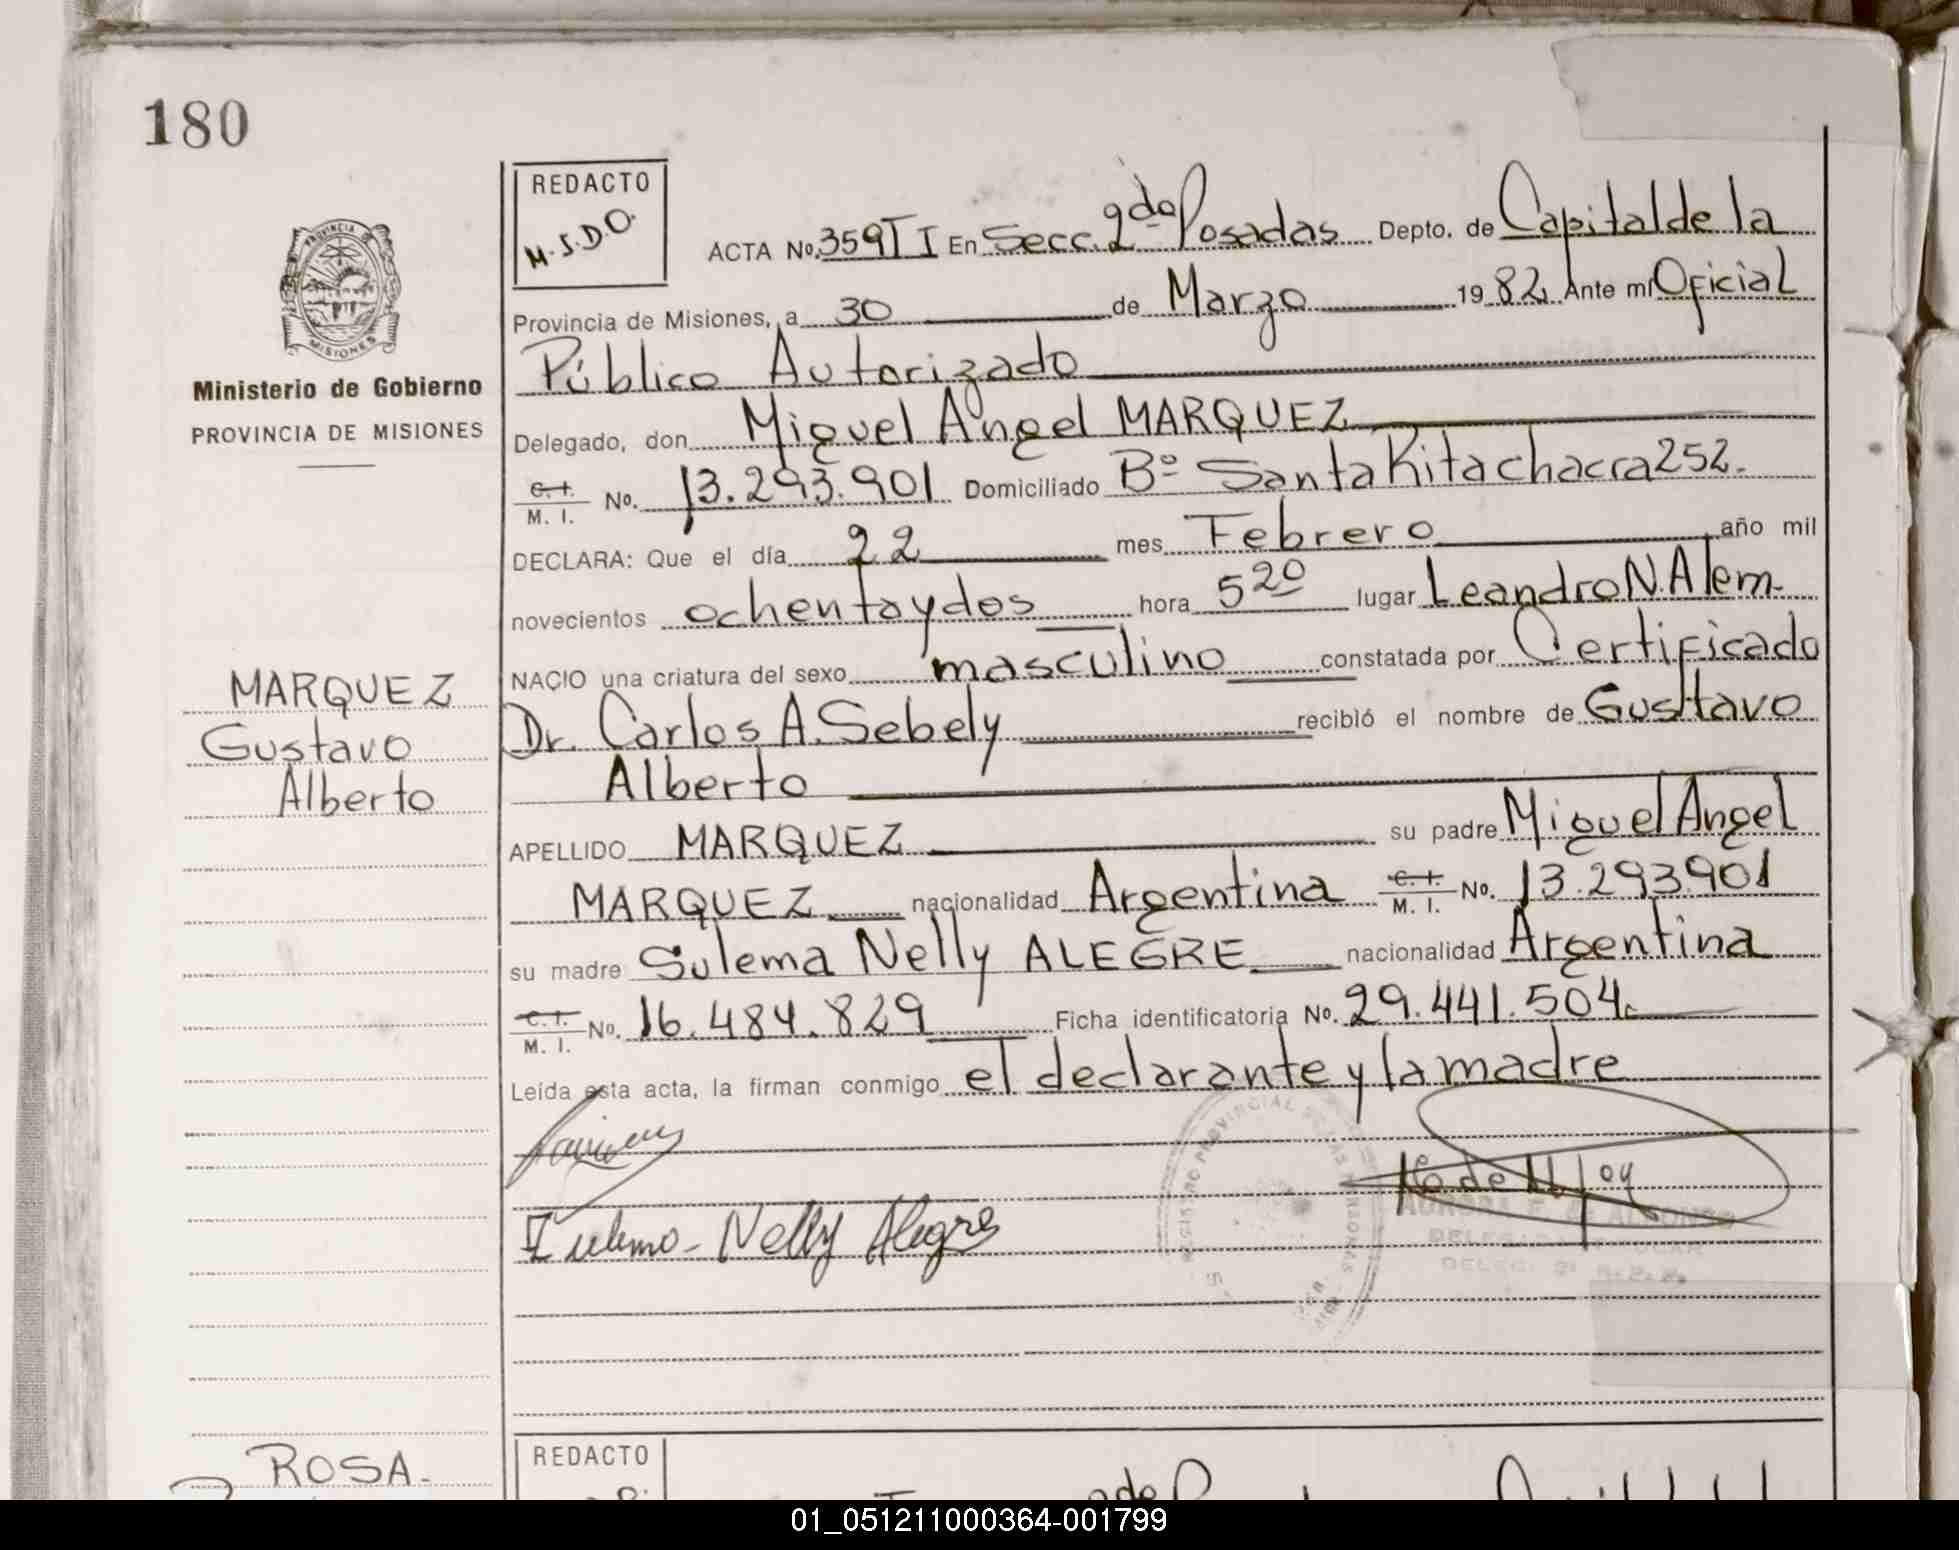 180
REDACTO
M.S.D.O.
ACTA No. 359 T I En Secc. 2da Posadas Depto. de Capital de la
Provincia de Misiones, a 30 de Marzo 1982 Ante mi Oficial
Público Autorizado
PROVINCIA DE
MISIONES
Ministerio de Gobierno
PROVINCIA DE MISIONES
Delegado, don Miguel Angel MARQUEZ
C. I. M. I. No. 13.293.901 Domiciliado Bº Santa Rita chacra 252.
DECLARA: Que el día 22 mes Febrero año mil
novecientos ochenta y dos hora 5 20 lugar Leandro N. Alem.
NACIO una criatura del sexo masculino constatada por Certificado
MARQUEZ
Gustavo
Alberto
Dr. Carlos A. Sebely recibió el nombre de Gusttavo
Alberto
APELLIDO MARQUEZ su padre Miguel Angel
MARQUEZ nacionalidad Argentina C. I. M. I. No. 13.293.901
su madre Sulema Nelly ALEGRE nacionalidad Argentina
C. I. M. I. No. 16.484.829 Ficha identificatoria No. 29.441.504
Leída esta acta, la firman conmigo el declarante y la madre
REGISTRO PROVINCIAL DE LAS PERSONAS
AURORA F. de ALFONSO
Nelly Alegre
DELEGADA TITULAR
DELEG. 2ª R.P.P.
ROSA
REDACTO
01_051211000364-001799